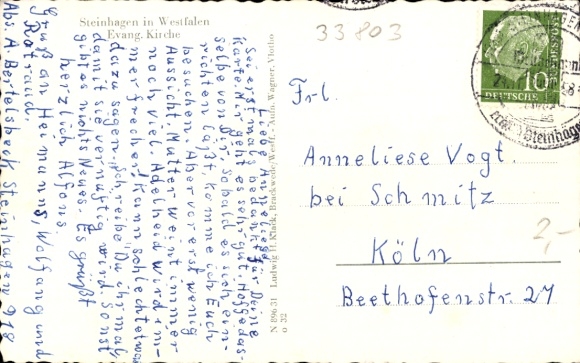 33803
Steinhagen in Westfalen
Evang. Kirche
N 896 31 Ludwig H. Klack, Brackwede/Westf. - Aufn. Wagner, Vlotho
o 32
Liebe Anneliese!
Sei erstmal bedankt für Deine
Karte. Mir geht es sehr gut. Hoffe das-
selbe von Dir. Sobald es sich ein-
richten läßt, komme ich Euch
besuchen. Aber vorerst wenig
Aussicht. Mutter weint immer
noch viel. Adelheid wird im-
mer frecher. Kann schlecht etwas
dazu sagen. Schreibe Du ihr mal
damit sie vernünftig wird. Sonst
gibt es nichts Neues. Es grüßt
herzlich Alfons
Gruß an Hermann, Wolfgang und
Rotraud.
Abs. A. Bertelsbeck Steinhagen 918
10
DEUTSCHE BUNDESPOST
Steinhäger
Frl.
Anneliese Vogt.
bei Schmitz
Köln
Beethofenstr. 27
2,-